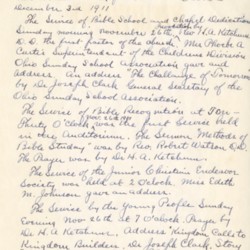 December 3rd 1911
The Service of Bible School and Chapel Dedication
Sunday morning November 26th Rev H.A. Ketchum
D.D. the first pastor of the church. Mrs Phoebe A
Curtis Superintendent of the Childrens Division
Ohio Sunday School Association gave and
address. An address "The Challenge of Tomorrow
by Dr Joseph Clark General Secretary of the
Ohio Sunday School Association.
The Service of Bible at
O'clock was the Service held
in the Auditorium. The Sermon Methods of
Bible Study" was by Rev. Robert Watson D.D.
The Prayer was by Dr H.A. Ketchum.
The Service of the Junior Christian Endeavor
Society was held at 2 O'clock. Miss Edith
M. Johnson gave an address.
The Service by the Young Peoples Sunday
Evening Nov 26th at 7 O'clock. Prayer by
Dr H.A. Ketchum. Address "Kingdom Calls to
Kingdom Builders. Dr Joseph Clark,